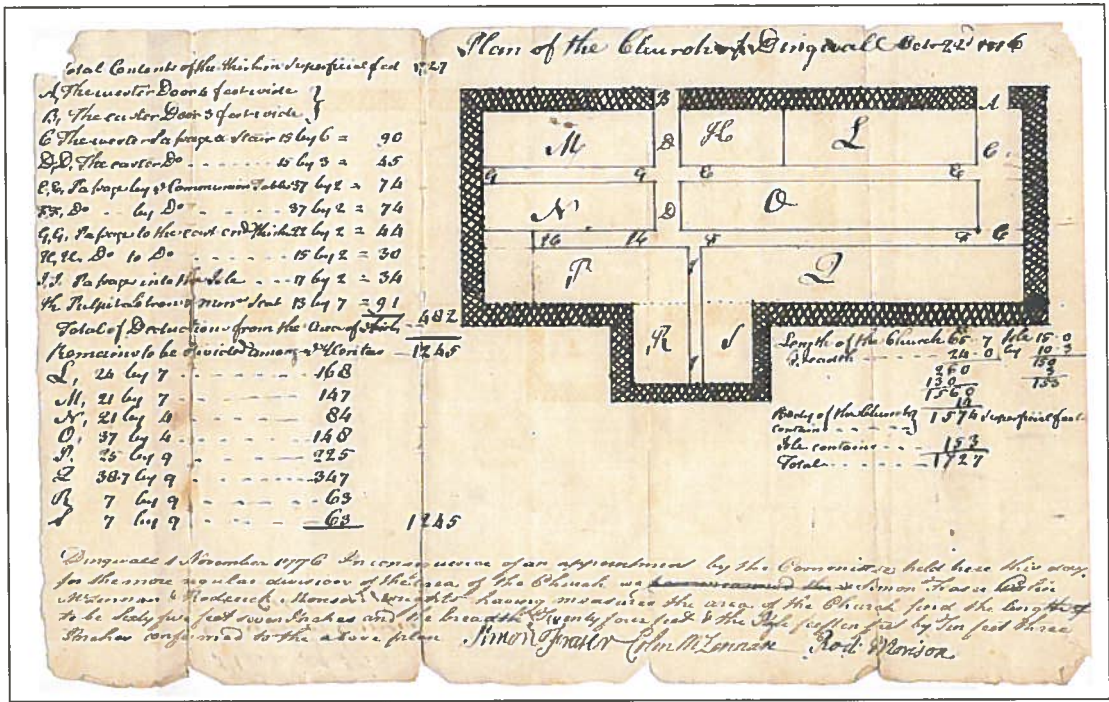 Plan of the Church of Dingwall Octr 22d 1776
otal Contents of the Kirk in Superficial feet 1727
A, The wester Door 4 feet wide
B, The easter Door 3 feet wide
C The wester Passage & Stair 15 by 6 = 90
D, D, The easter Do - - - - 15 by 3 = 45
E, E, Passage by ye Communion Table 37 by 2 = 74
F.F, Do - - by Do - - - - 37 by 2 = 74
G, G, Passage to the east end Kirk 22 by 2 = 44
H, H, Do to Do - - - - 15 by 2 = 30
I.I. Passage into the Isle - - 17 by 2 = 34
K Pulpit & 13 by 7 = 91
482
Total of Deductions from the Area of Kirk
Remains to be divided among ye Heritors 1245
L, 24 by 7 - - - - 168
M, 21 by 7 - - - - 147
N, 21 by 4 - - - - 84
O, 37 by 4 - - - - 148
P. 25 by 9 - - - - 225
Q 38.7 by 9 - - - - 347
R 7 by 9 - - - - 63
S 7 by 9 - - - - 63 1245
B A
M D K L C
G G E E
N D O
H H F F C
P I Q
R S
I
Length of the Church 65 . 7 Isle 15 . 0
Breadth - - - - 24 . 0 by 10 . 3
260 150
130 3
1560 153
14
Body of the Church contains - - - 1574 Superficial feet
Isle contains - - - 153
Total - - - - 1727
Dingwall 1 November 1776 In consequence of an appointment by the Committee held here this day
for the more regular division of the area of the Church we Simon Fraser Colin
McLennan & Roderick Morison wrights having measured the area of the Church find the length of it
to be Sixty five feet seven Inches and the breadth Twenty four feet & the Isle fifteen feet by Ten feet three
Inches conformed to the above plan Simon Fraser Colin McLennan Rod: Morison